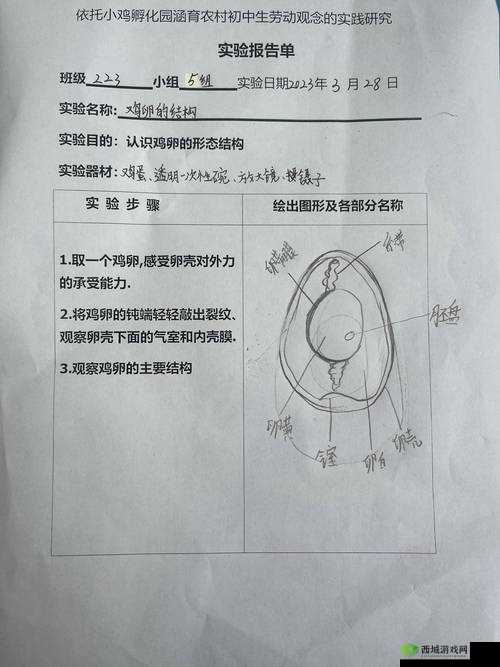 依托小鸡孵化园涵育农村初中生劳动观念的实践研究
实验报告单
班级 223 小组 5组 实验日期2023年3月28日
实验名称:鸡卵的结构
实验目的: 认识鸡卵的形态结构
实验器材: 鸡蛋、透明一次性碗、放大镜、镊子
实验步骤
绘出图形及各部分名称
1.取一个鸡卵,感受卵壳对外力
的承受能力.
2.将鸡卵的钝端轻轻敲出裂纹、
观察卵壳下面的气室和内壳膜.
3.观察鸡卵的主要结构
卵黄膜
系带
胚盘
卵黄
气室
卵白
卵壳
西城游戏网